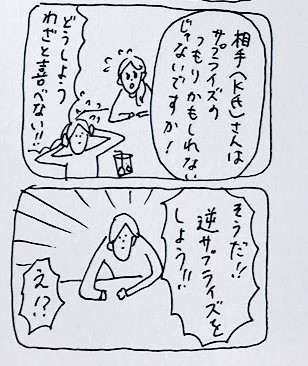 相手（K氏）さんは
サプライズの
つもりかもしれない
じゃないですか！
どうしよう
わざと喜べない!!
そうだ!!
逆サプライズを
しよう!!
え!?